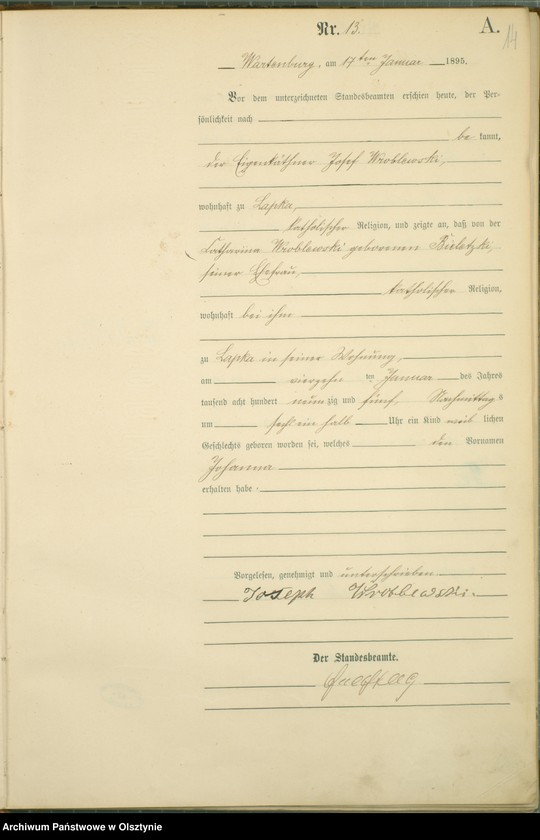 Nr. 13.
A.
14
Wartenburg, am 17ten Januar 1895.
Vor dem unterzeichneten Standesbeamten erschien heute, der Per-
sönlichkeit nach
be kannt,
der Eigenkäthner Josef Wroblewski,
wohnhaft zu Lapka,
katholischer Religion, und zeigte an, daß von der
Catharina Wroblewski geborenen Bieletzki,
seiner Ehefrau,
katholischer Religion,
wohnhaft bei ihm
zu Lapka in seiner Wohnung,
am vierzehn ten Januar des Jahres
tausend acht hundert neun zig und fünf, Nachmittag s
um sechs ein halb Uhr ein Kind weib lichen
Geschlechts geboren worden sei, welches den Vornamen
Johanna
erhalten habe.
Vorgelesen, genehmigt und unterschrieben
Joseph Wroblewski.
Der Standesbeamte.
Archiwum Państwowe w Olsztynie